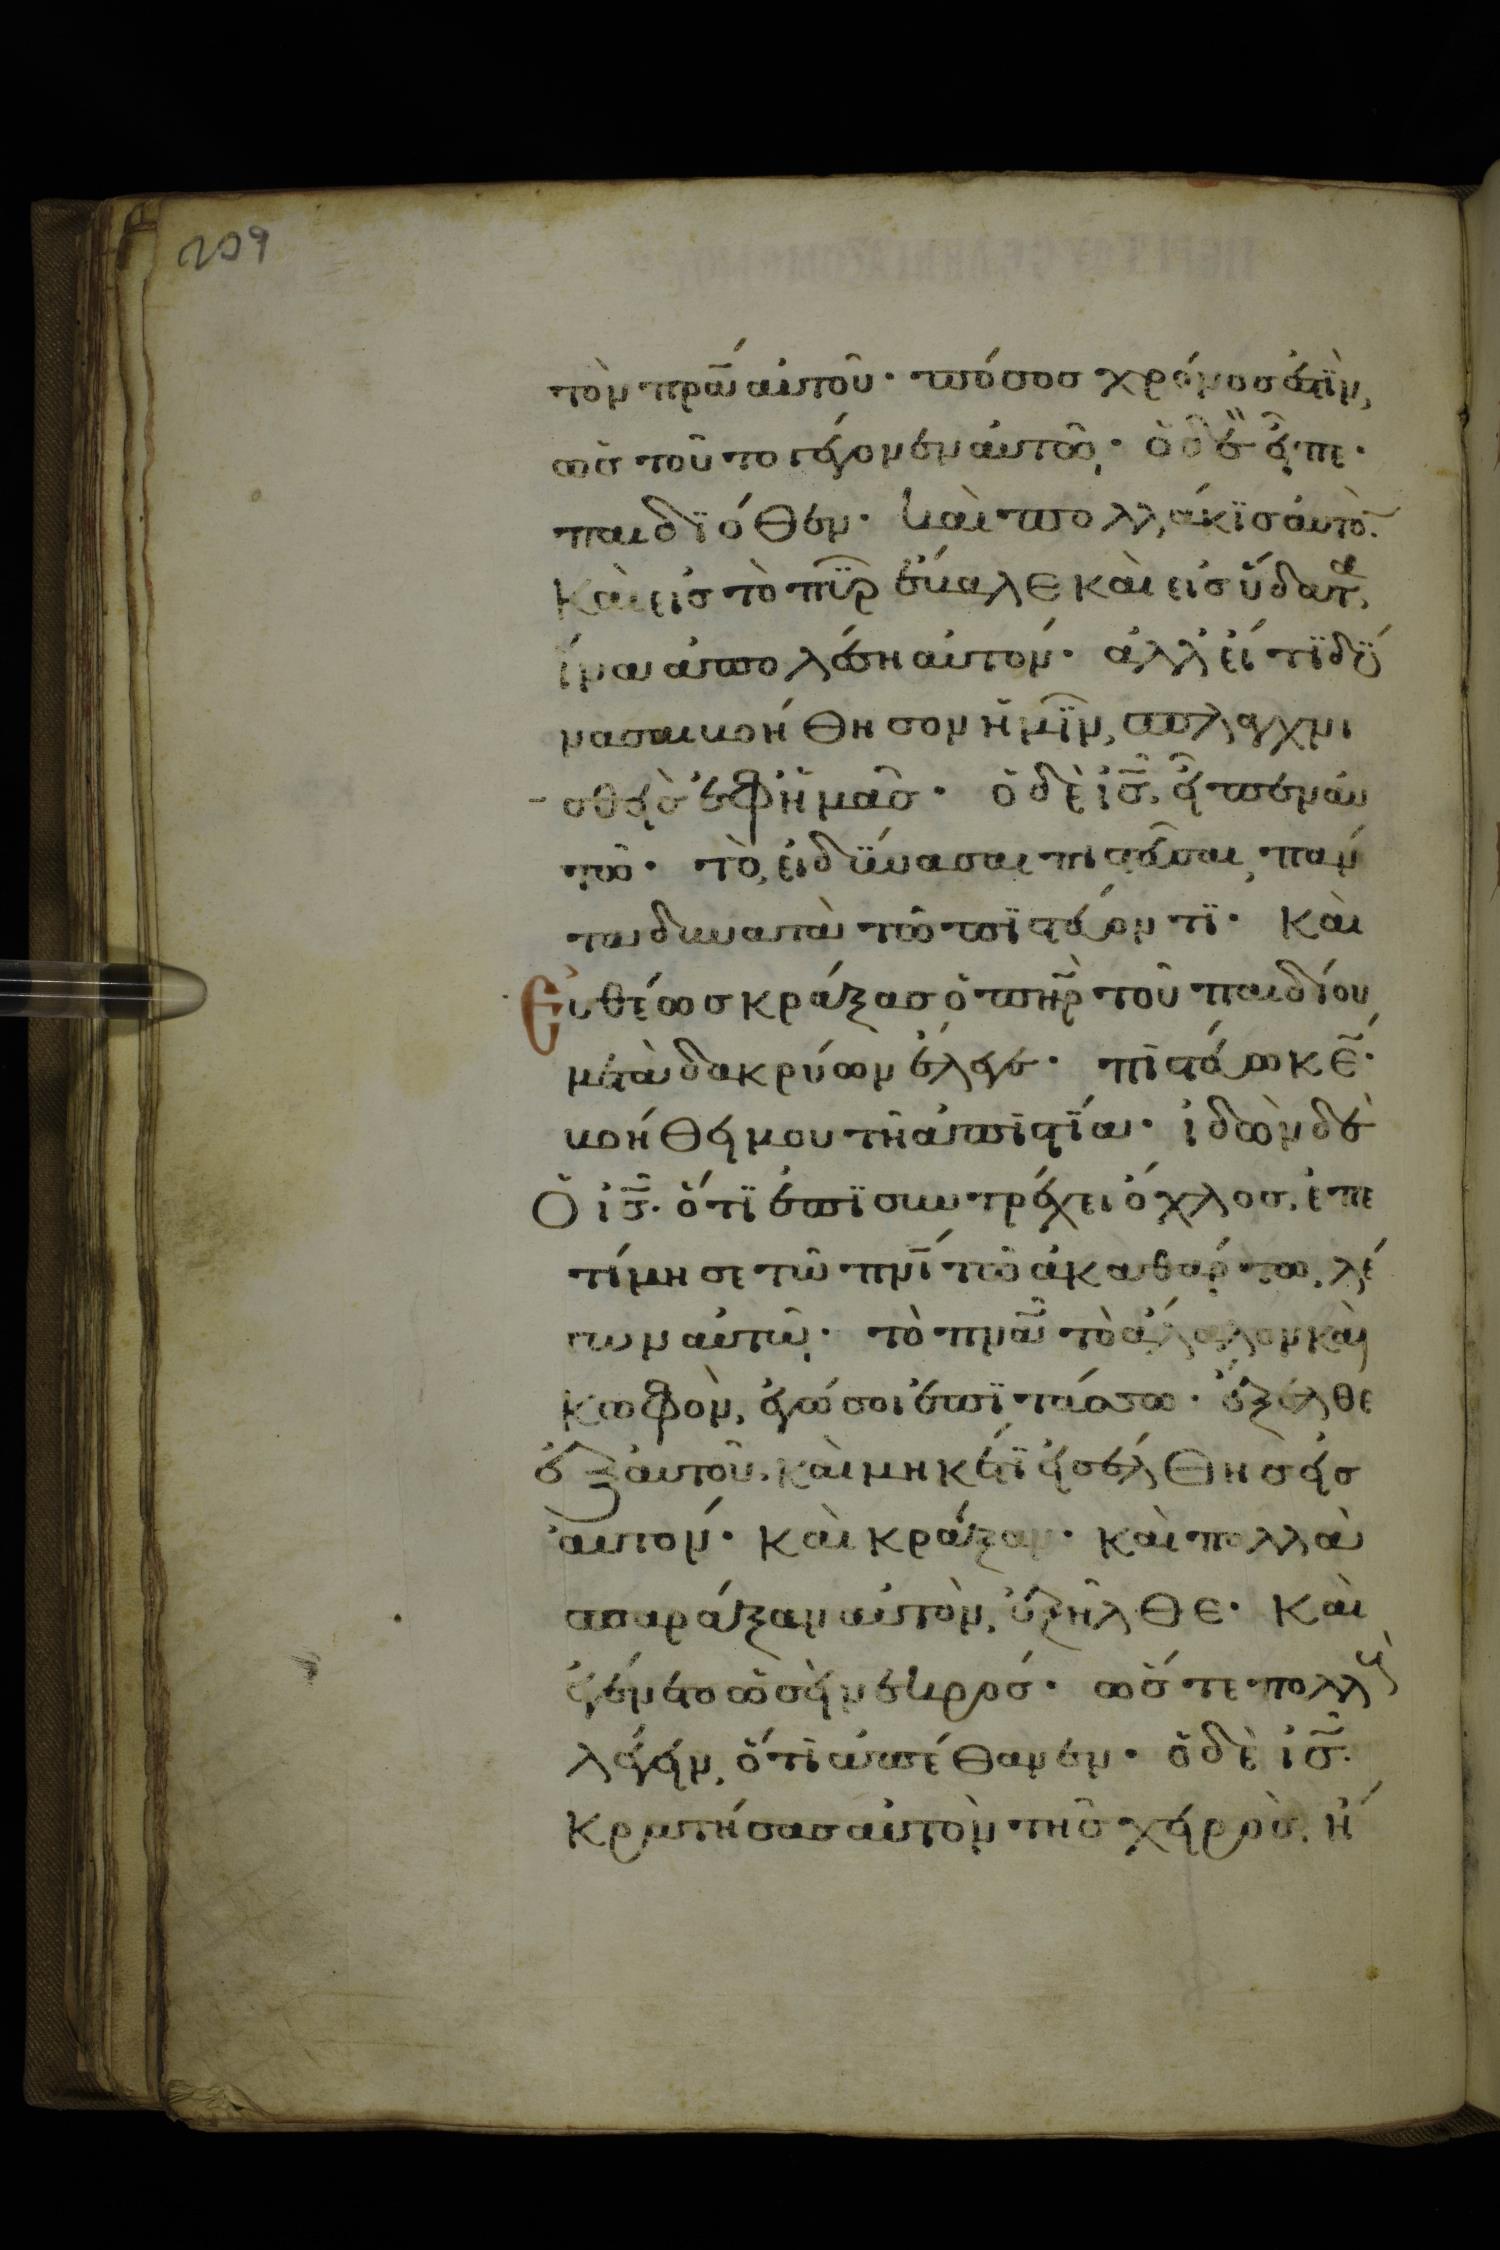 209
τὸν πρ̅α αὐτοῦ· πόσος χρόνος ἐστὶν,
ὡς τοῦτο γέγονεν αὐτῶ· ὁ δὲ εἶπε·
παιδϊόθεν· καὶ πολλάκϊς αὐτὸν
καὶ εἰς τὸ πῦρ ἔβαλε καὶ εἰς ὕδατα,
ἵνα ἀπολέση αὐτόν· ἀλλ' εἴ τϊ δύ
νασαι βοήθησον ἡμῖν, σπλαγχνι
σθεὶς ἐφ' ἡμᾶς· ὁ δὲ ι̅ς̅, εἶπεν αὐ
τῶ· τὸ, εἰ δύνασαι πιστεῦσαι, πάν
τα δυνατὰ τῶ πϊστεύοντϊ· καὶ
Εὐθέως κράξας ὁ π̅η̅ρ̅ τοῦ παιδίου
μετὰ δακρύων ἔλεγε· πιστεύω κ̅ε̅·
βοήθει μου τῆ ἀπιστϊα· ἰδὼν δὲ
Ὁ ι̅ς̅· ὅτϊ ἐπϊσυντρέχει ὄχλος, ἐπε
τίμησε τῶ π̅ν̅ι̅ τῶ ἀκαθάρτω, λέ
γων αὐτῶ· τὸ π̅ν̅α̅ τὸ ἄλαλον καὶ
κωφὸν, ἐγώ σοι ἐπϊτάσσω· ἔξελθε
ἐξ αὐτοῦ, καὶ μηκέτϊ εἰσέλθης εἰς
αὐτόν· καὶ κράξαν· καὶ πολλὰ
σπαράξαν αὐτὸν, ἐξῆλθε· καὶ
ἐγένετο ὡσεὶ νεκρός· ὥστε πολλοὺς
λέγειν, ὅτι ἀπέθανεν· ὁ δὲ ι̅ς̅·
κρατήσας αὐτὸν τῆς χειρὸς, ἤ